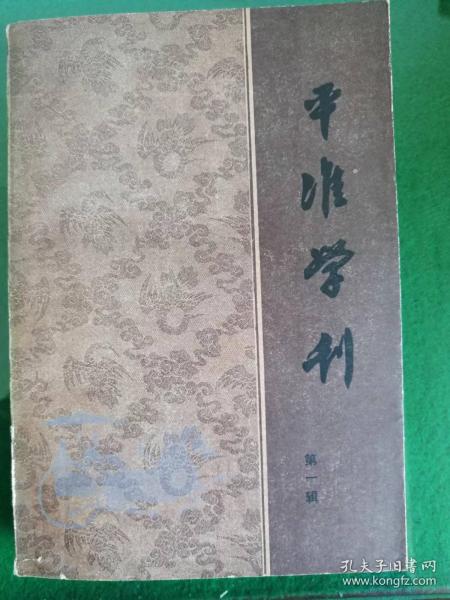 平准学刊
第一辑
孔夫子旧书网
www.kongfz.com